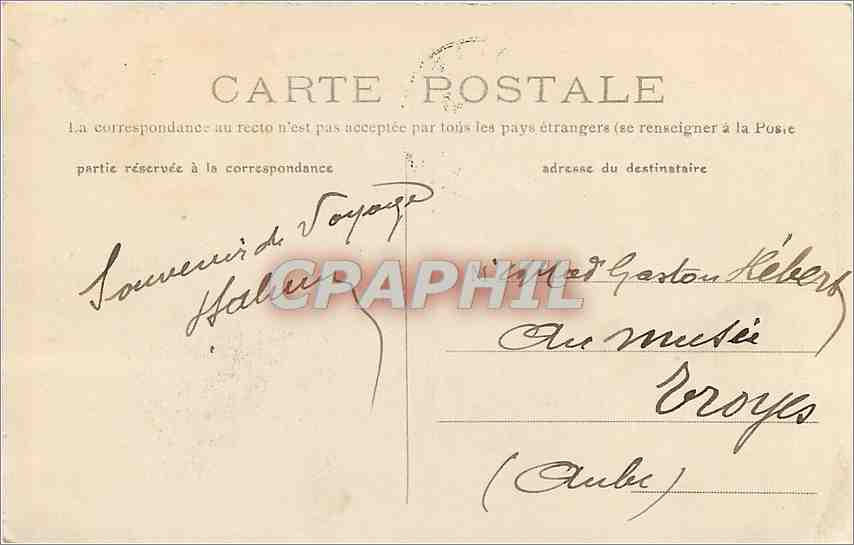 CARTE POSTALE
La correspondance au recto n'est pas acceptée par tous les pays étrangers (se renseigner à la Poste
partie réservée à la correspondance
adresse du destinataire
Souvenir de Voyage
CPAPHIL
Gaston Hébert
Au musée
Troyes
(Aube)